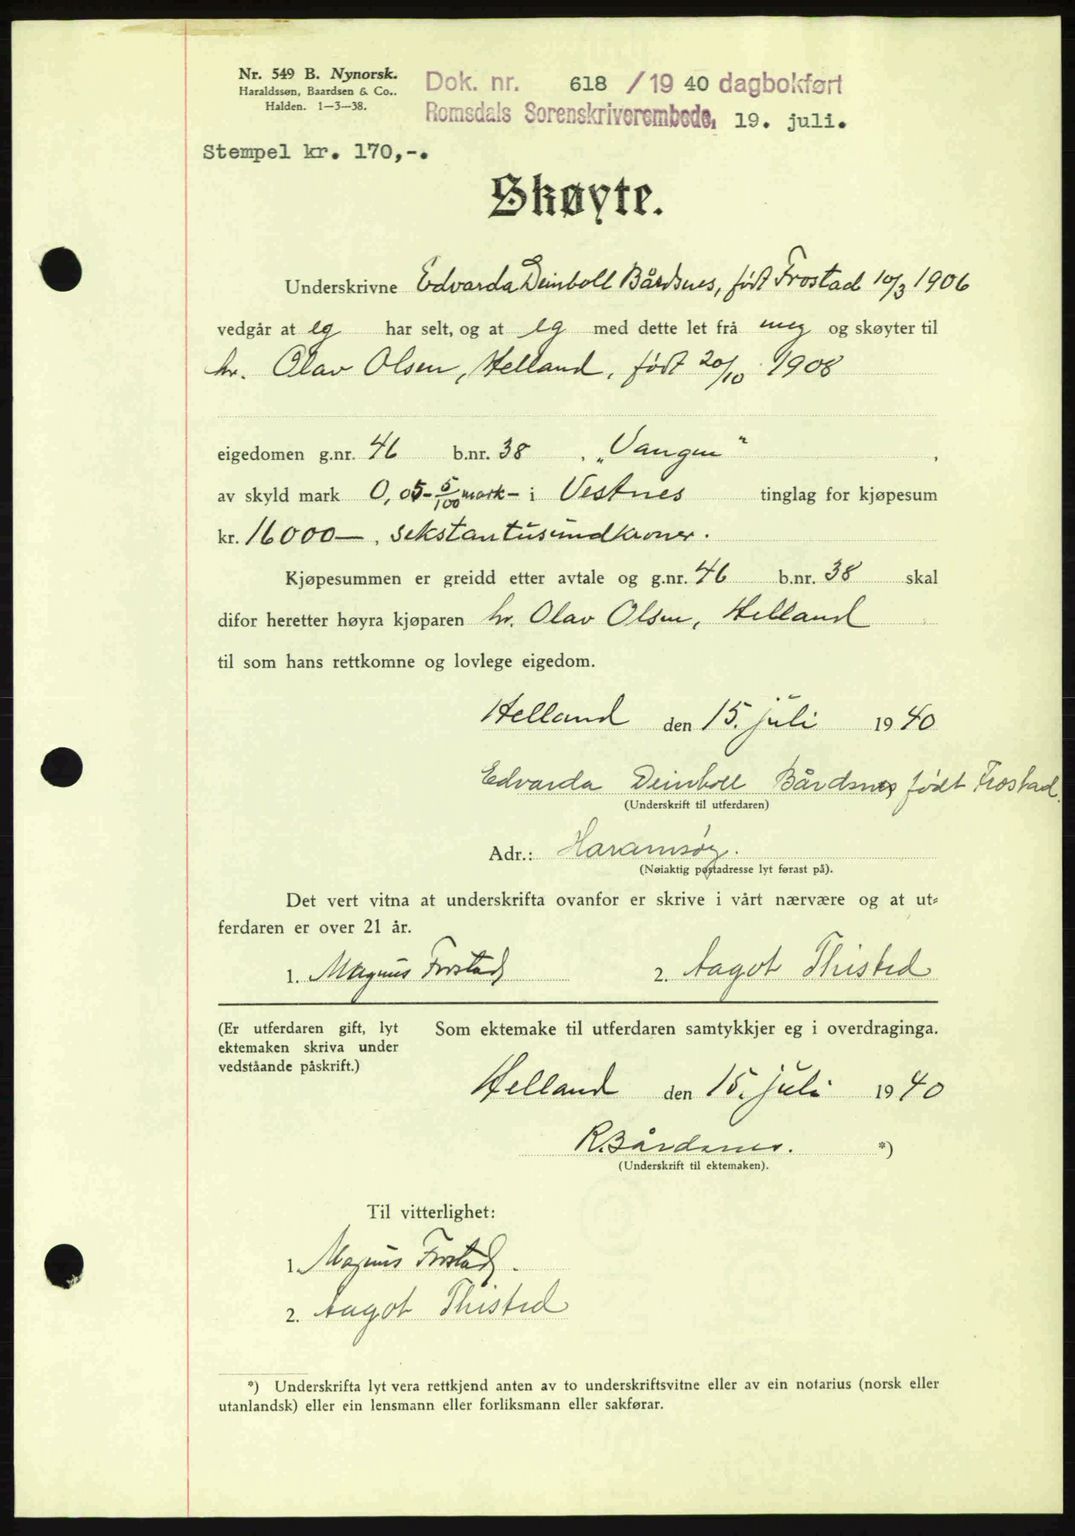 Nr. 549 B. Nynorsk.
Haraldssøn, Baardsen & Co..
Halden. 1-3-38.
Dok. nr. 618 / 19 40 dagbokført
Romsdals Sorenskriverembede, 19. juli.
Stempel kr. 170,-.
Skøyte.
Underskrivne Edvarda Deinboll Bårdsnes, født Frostad 10/3 1906
vedgår at eg har selt, og at eg med dette let frå meg og skøyter til
hr. Olav Olsen, Helland, født 20/10 1908
eigedomen g.nr. 46 b.nr. 38 , „Vangen" ,
av skyld mark 0,05 - 5/100 mark - i Vestnes tinglag for kjøpesum
kr. 16000 — , sekstantusundkroner.
Kjøpesummen er greidd etter avtale og g.nr. 46 b.nr. 38 skal
difor heretter høyra kjøparen hr. Olav Olsen, Helland
til som hans rettkomne og lovlege eigedom.
Helland den 15. juli 19 40
Edvarda Deinboll Bårdsnes født Frostad.
(Underskrift til utferdaren)
Adr.: Haramsøy.
(Nøiaktig postadresse lyt førast på).
Det vert vitna at underskrifta ovanfor er skrive i vårt nærvære og at ut=
ferdaren er over 21 år.
1. Magnus Frostad 2. Aagot Thisted
(Er utferdaren gift, lyt
ektemaken skriva under
vedståande påskrift.)
Som ektemake til utferdaren samtykkjer eg i overdraginga.
Helland den 15. juli 19 40
R. Bårdsnes. *)
(Underskrift til ektemaken).
Til vitterlighet:
1. Magnus Frostad.
2. Aagot Thisted
*) Underskrifta lyt vera rettkjend anten av to underskriftsvitne eller av ein notarius (norsk eller
utanlandsk) eller ein lensmann eller forliksmann eller sakførar.